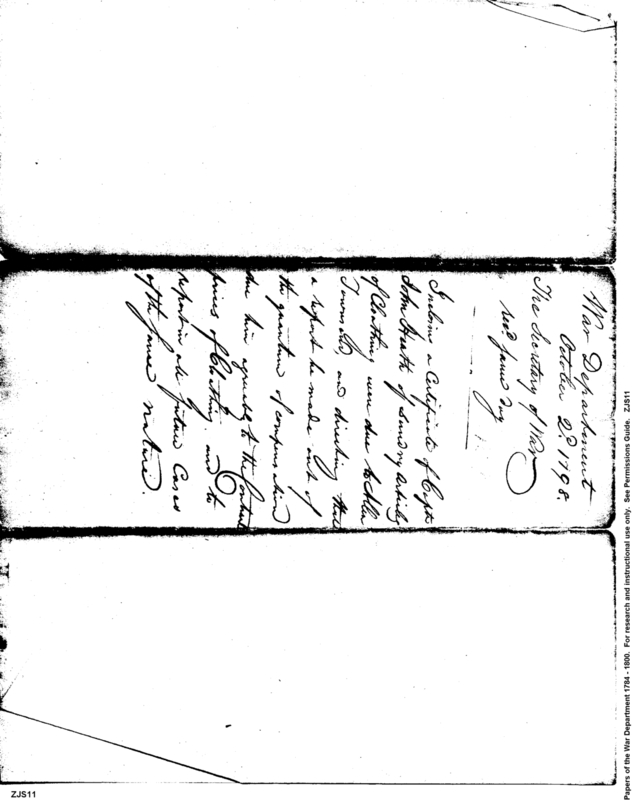 War Department
October 2d. 1798.
The Secretary of War,
recd. same day
Inclosing a Certificate of Capt
John Heath of sundry articles
of Clothing were due to Allen
Townsd, and directing that
a report be made out of
the quantum of compensation
due him agreeable to the Contract
prices of Clothing and to
report in de future Cases
of the same nature.
ZJS11
Papers of the War Department 1784 - 1800. For research and instructional use only. See Permissions Guide. ZJS11